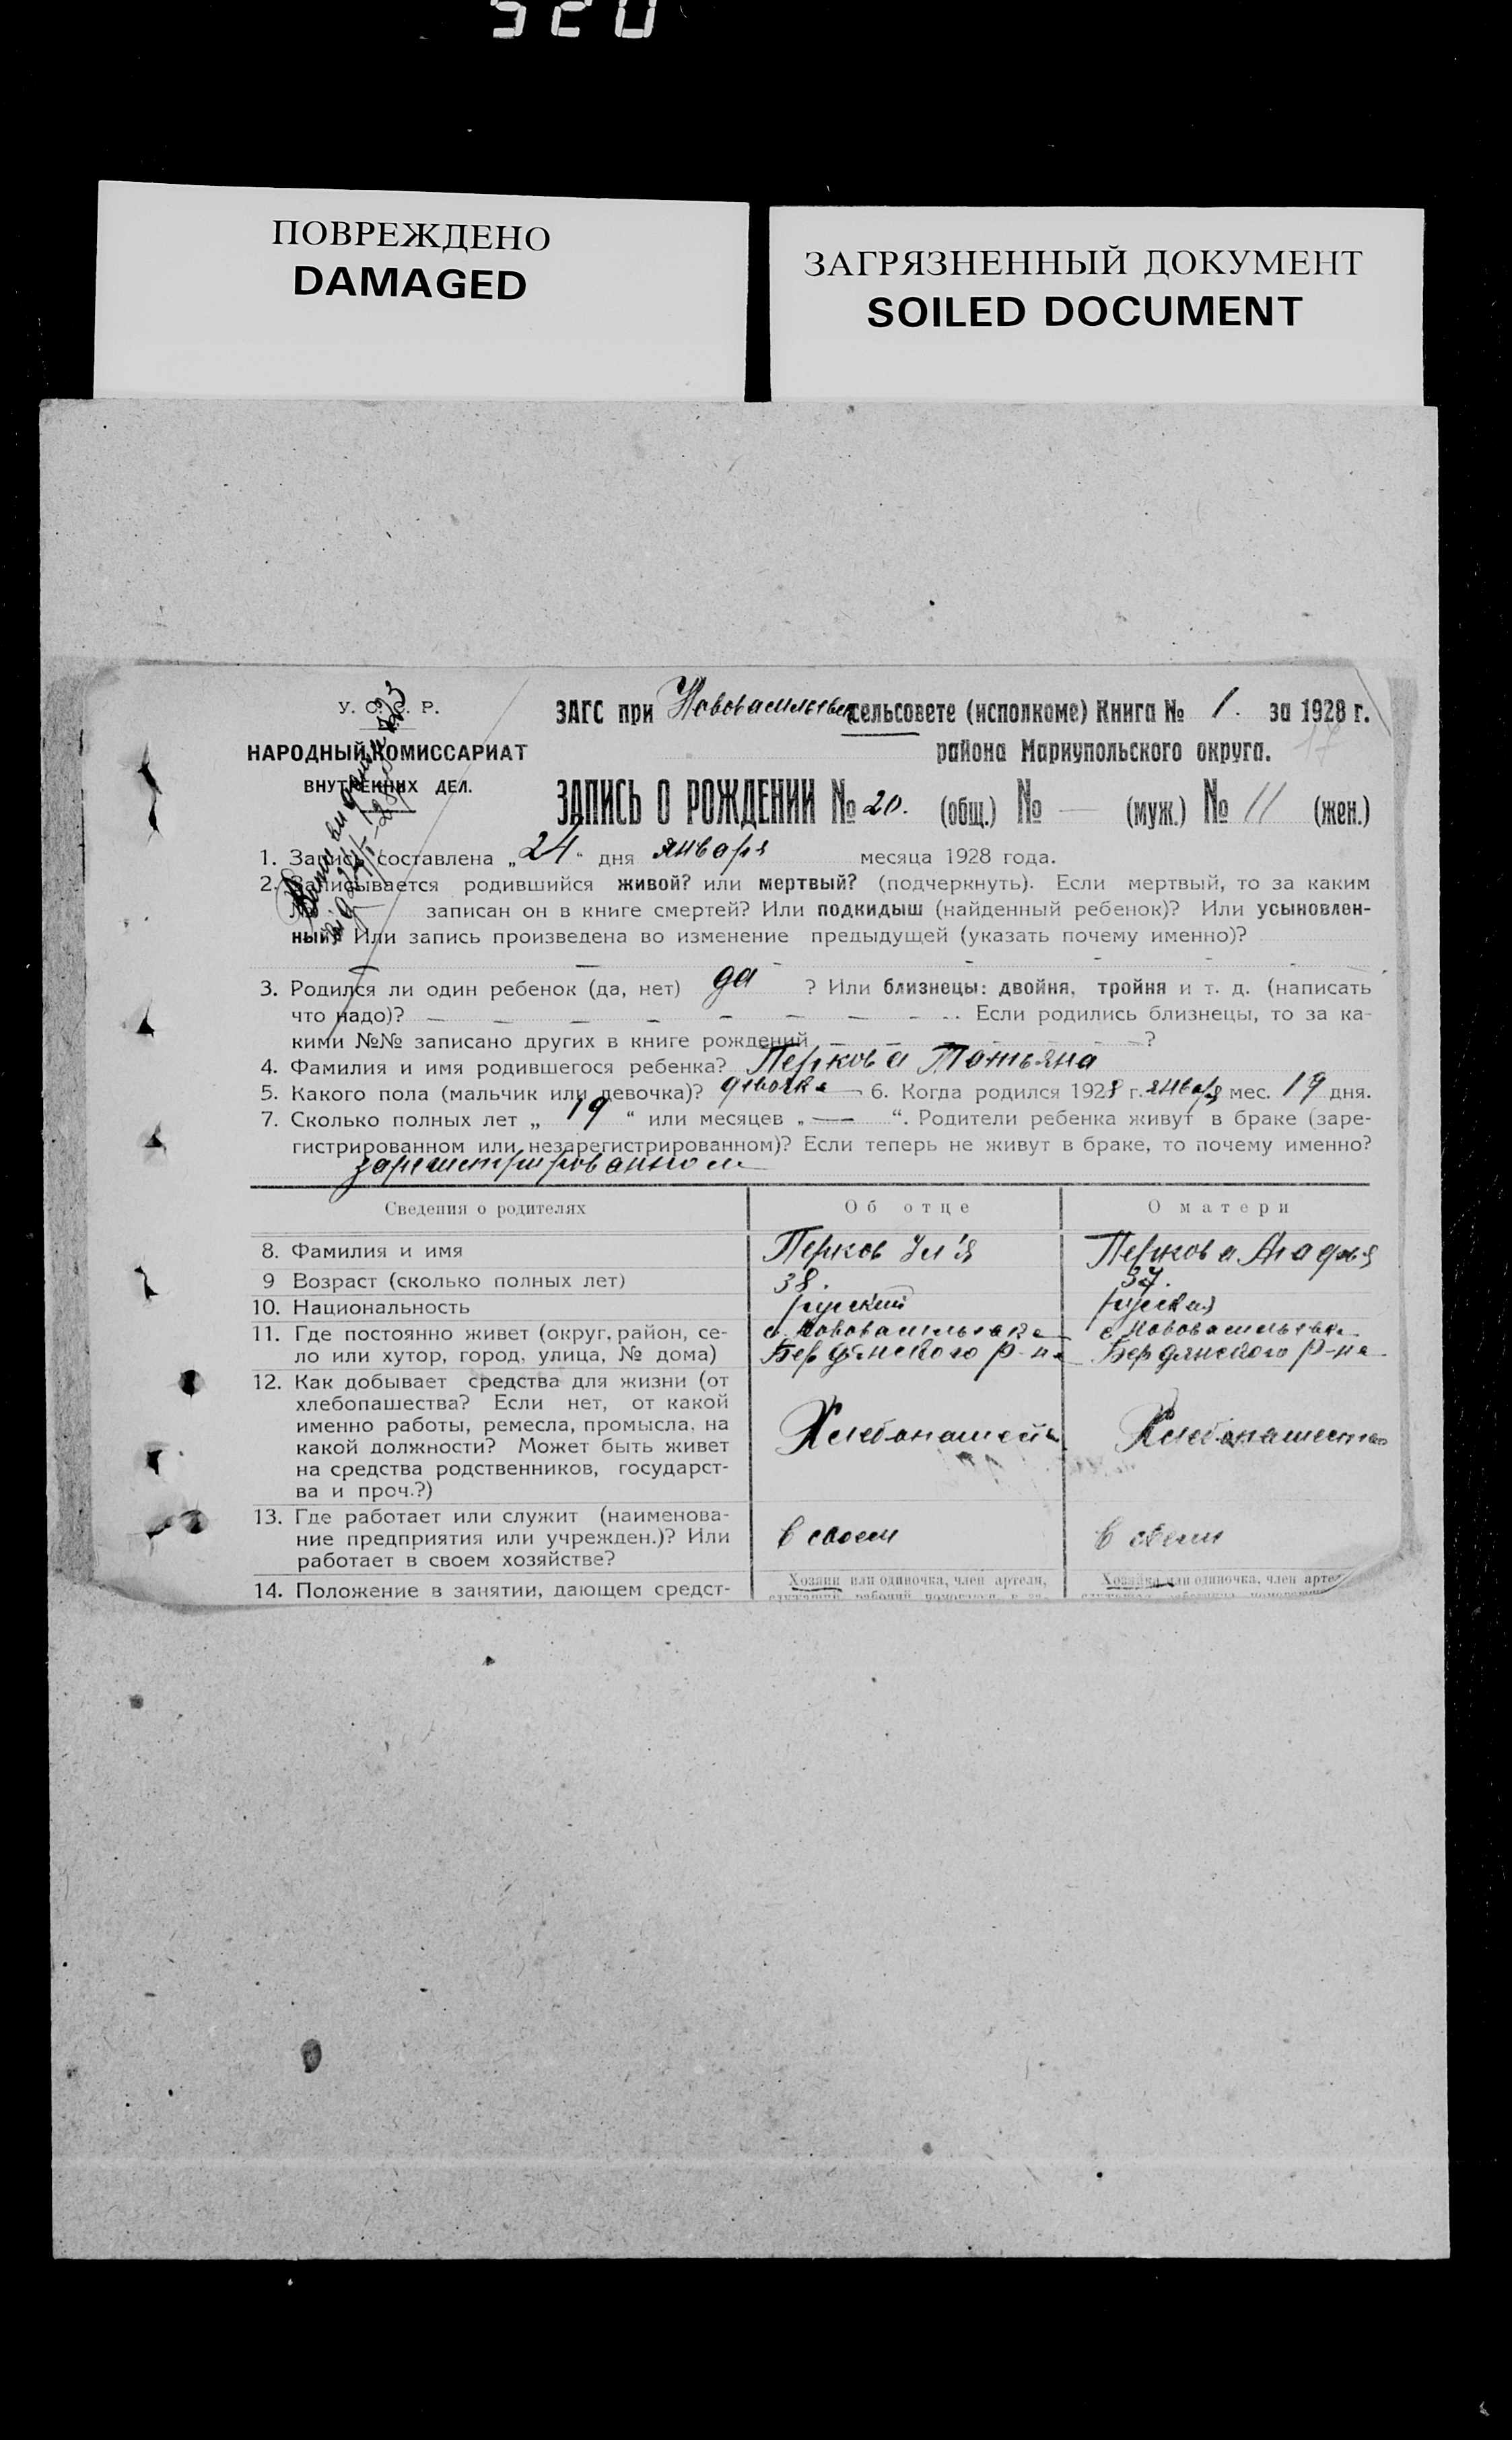 520
ПОВРЕЖДЕНО
DAMAGED
ЗАГРЯЗНЕННЫЙ ДОКУМЕНТ
SOILED DOCUMENT
У. С. С. Р.
НАРОДНЫЙ КОМИССАРИАТ
ВНУТРЕННИХ ДЕЛ.
ЗАГС при Нововасильев сельсовете (исполкоме) Книга № 1. за 1928 г.
17
района Мариупольского округа.
ЗАПИСЬ О РОЖДЕНИИ № 20. (общ.) № — (муж.) № 11 (жен.)
1. Запись составлена „24“ дня января месяца 1928 года.
2. Записывается родившийся живой? или мертвый? (подчеркнуть). Если мертвый, то за каким
№ записан он в книге смертей? Или подкидыш (найденный ребенок)? Или усыновлен-
ный? Или запись произведена во изменение предыдущей (указать почему именно)?
3. Родился ли один ребенок (да, нет) да ? Или близнецы: двойня, тройня и т. д. (написать
что надо)? — — — — — — — - - Если родились близнецы, то за ка-
кими №№ записано других в книге рождений — - - - - - —?
4. Фамилия и имя родившегося ребенка? Перкова Татьяна
5. Какого пола (мальчик или девочка)? девочка — 6. Когда родился 1928 г. января мес. 19 дня.
7. Сколько полных лет „ 19 “ или месяцев „ — “. Родители ребенка живут в браке (заре-
гистрированном или незарегистрированном)? Если теперь не живут в браке, то почему именно?
зарегистрированном
Сведения о родителях Об отце О матери
8. Фамилия и имя Перков Ил'я Перкова Агафья
9 Возраст (сколько полных лет) 38. 37.
10. Национальность русский русская
11. Где постоянно живет (округ, район, се- с. Нововасильевка с. Нововасильевка
ло или хутор, город, улица, № дома) Бердянского р-на Бердянского р-на
12. Как добывает средства для жизни (от
хлебопашества? Если нет, от какой
именно работы, ремесла, промысла, на Хлебопашество Хлебопашество
какой должности? Может быть живет
на средства родственников, государст-
ва и проч.?)
13. Где работает или служит (наименова-
ние предприятия или учрежден.)? Или в своем в своем
работает в своем хозяйстве?
14. Положение в занятии, дающем средст- Хозяин или одиночка, член артели, Хозяйка или одиночка, член арте